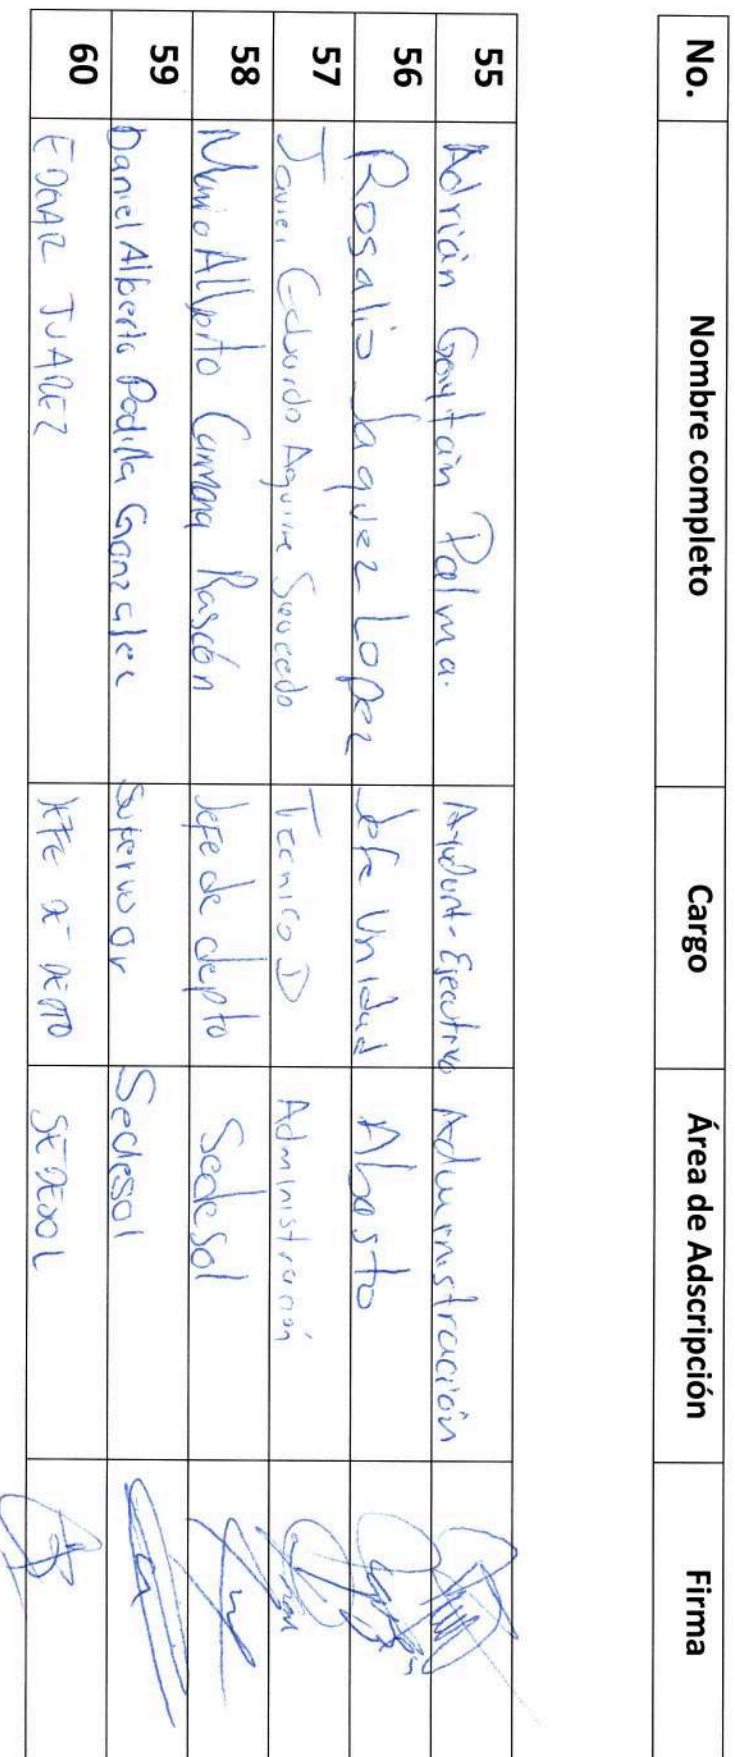 No. Nombre completo Cargo Área de Adscripción Firma
55 Adrián Gaytán Palma. Ayudant-Ejecutivo Administración
56 Rosalio Jaquez Lopez Jefe Unidad Abasto
57 Javier Eduardo Aguirre Saucedo Tecnico D Administración
58 Mario Alberto Carmona Rascón Jefe de depto Sedesol
59 Daniel Alberto Padilla Gonzalez Supervisor Sedesol
60 EDGAR JUAREZ JEFE DE DEPTO SEDESOL